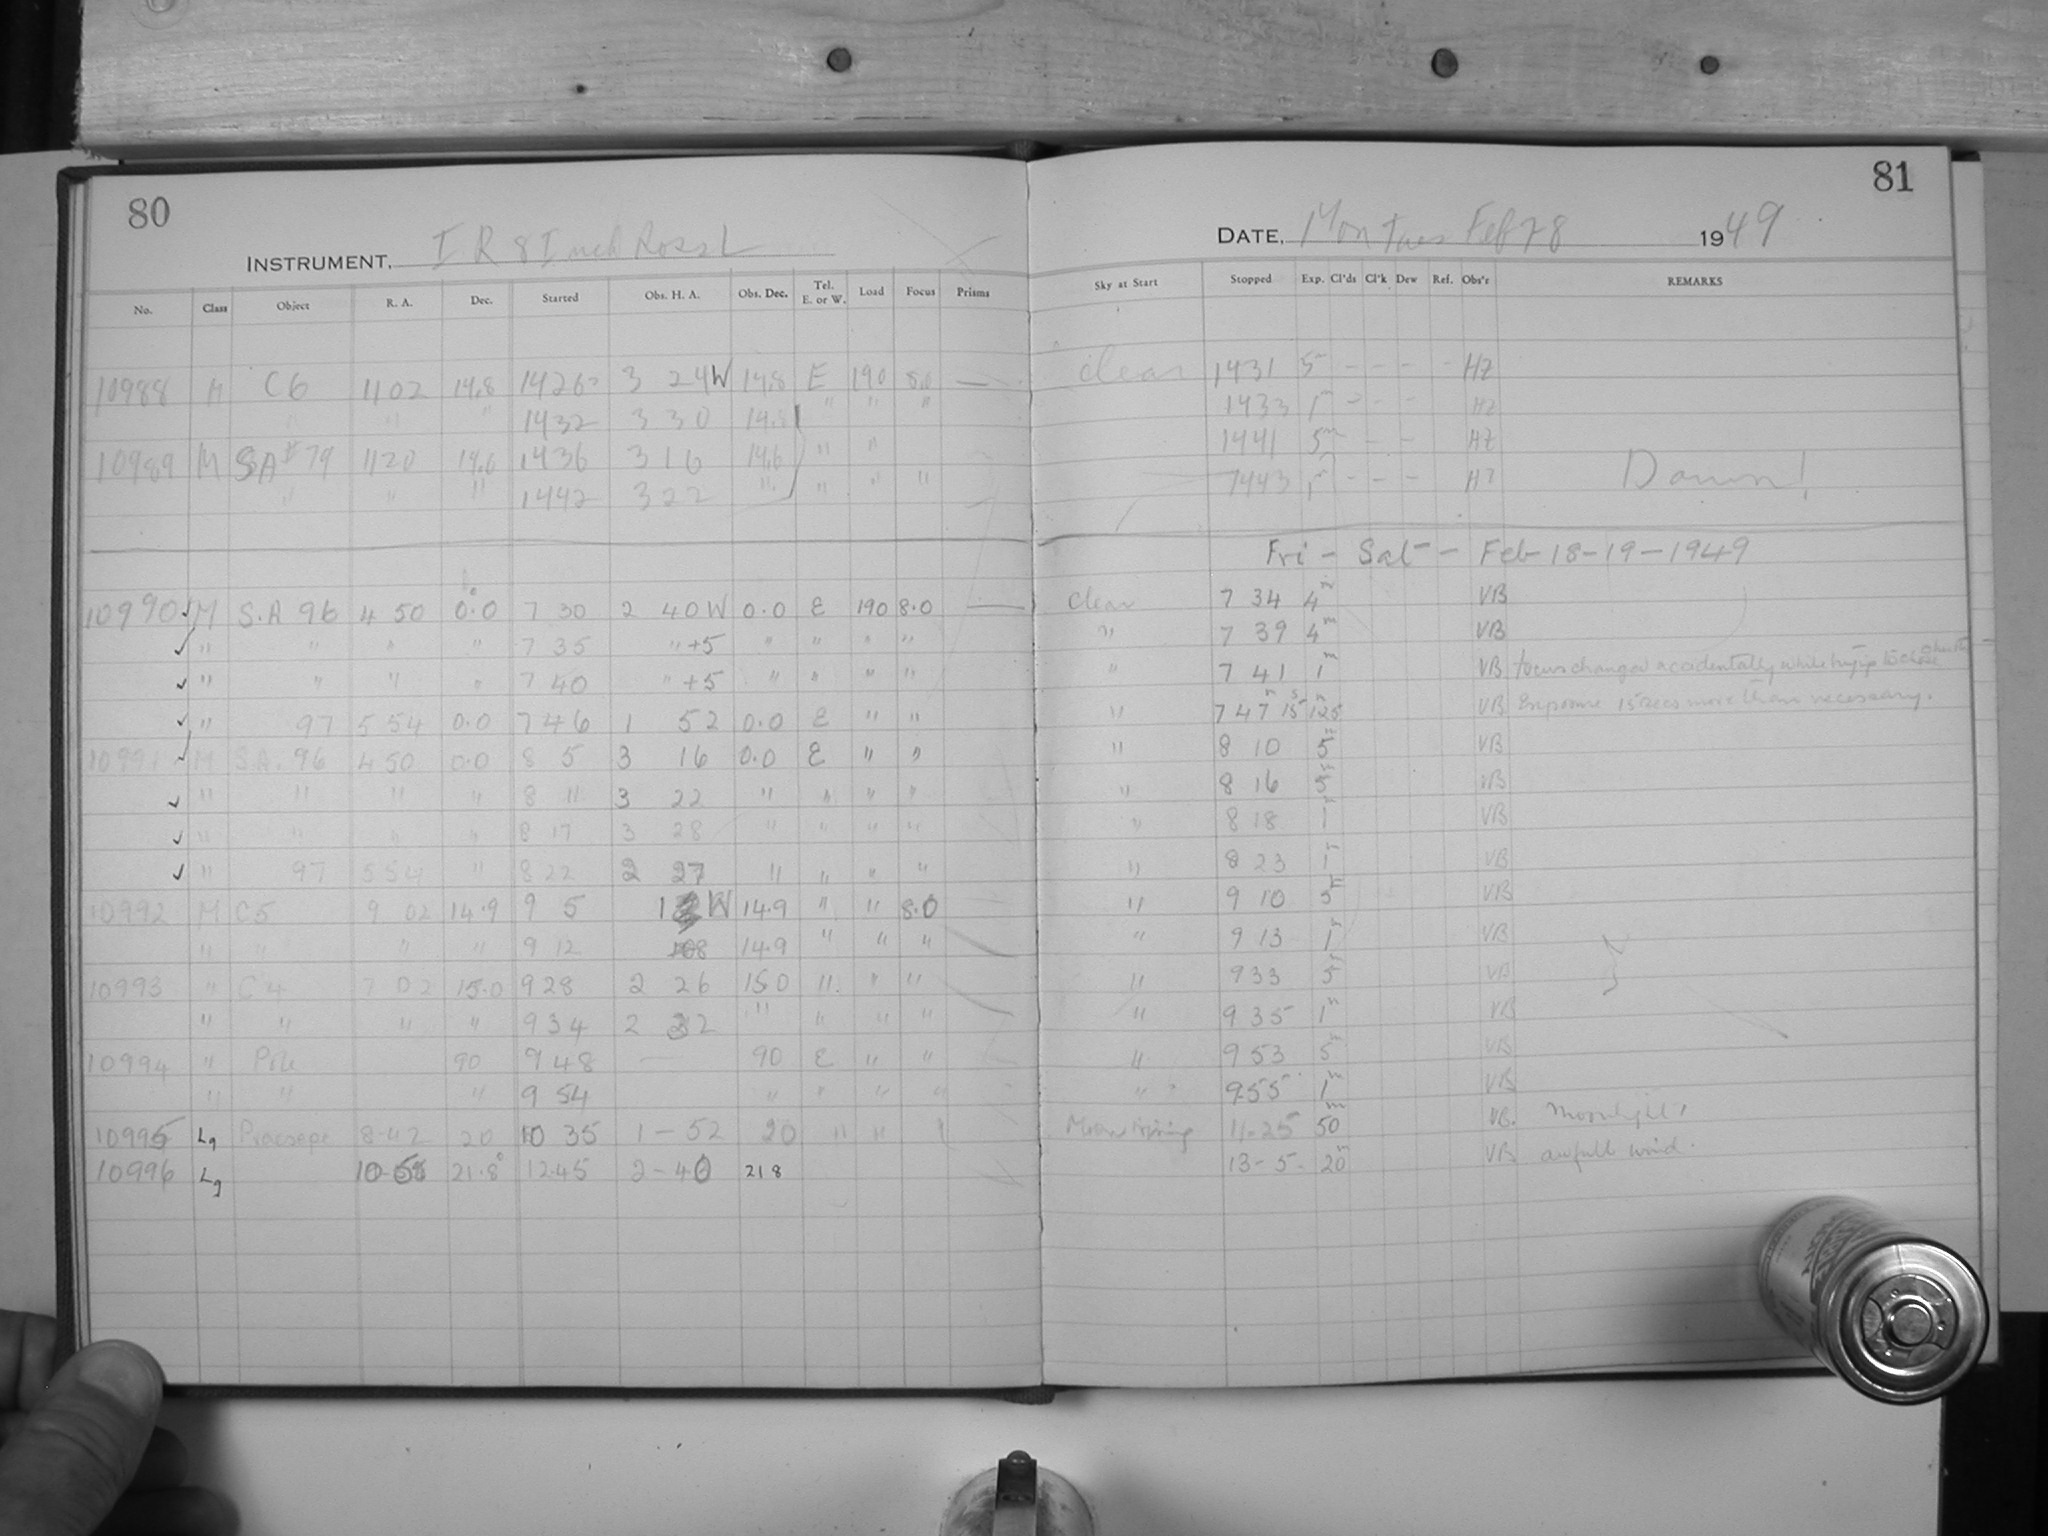 80
INSTRUMENT, I R 8 Inch Ross L
No. Class Object R. A. Dec. Started Obs. H. A. Obs. Dec. Tel. E. or W. Load Focus Prisms
10988 M C6 1102 14.8 1426 3 24W 14.8 E 190 8.0 —
" " " 1432 3 30 14.8 " " "
10989 M SA # 79 1120 14.6 1436 3 16 14.6 " "
" " " 1442 3 22 " " " "
10990 M S.A 96 4 50 0.0 7 30 2 40W 0.0 E 190 8.0 —
" " " " 7 35 " +5 " " " "
" " " " 7 40 " +5 " " " "
" 97 5 54 0.0 7 46 1 52 0.0 E " "
10991 M S.A. 96 4 50 0.0 8 5 3 16 0.0 E " "
" " " " 8 11 3 22 " " " "
" " " " 8 17 3 28 " " " "
" 97 5 54 " 8 22 2 27 " " " "
10992 M C5 9 02 14.9 9 5 W 14.9 " " 8.0
" " " " 9 12 14.9 " " "
10993 " C4 7 02 15.0 9 28 2 26 15.0 " " "
" " " " 9 34 2 32 " " " "
10994 " Pole 90 9 48 — 90 E " "
" " " 9 54 " " " "
10995 Lg Praesepe 8-42 20 10 35 1-52 20 " "
10996 Lg 10-58 21.8° 12 45 2-40 21.8
81
DATE, Mon Tues Feb 7 8 1949
Sky at Start Stopped Exp. Cl'ds Cl'k Dew Ref. Obs'r REMARKS
clear 1431 5 - - - - HZ
1433 1m - - - HZ
1441 5m - - HZ
1443 1m - - - HZ Dawn!
Fri - Sat - Feb 18-19-1949
Clear 7 34 4m VB
" 7 39 4m VB
" 7 41 1m VB focus changed accidentally while trying to close
" 7 47 15 VB Exposure 15 secs more than necessary.
" 8 10 5m VB
" 8 16 5m VB
" 8 18 1m VB
" 8 23 1m VB
" 9 10 5m VB
" 9 13 1m VB
" 9 33 5m VB
" 9 35 1m VB
" 9 53 5m VB
" 9 55 1m VB
Moon rising 11-25 50m VB. Moonlight!
13-5. 20m VB awfull wind.